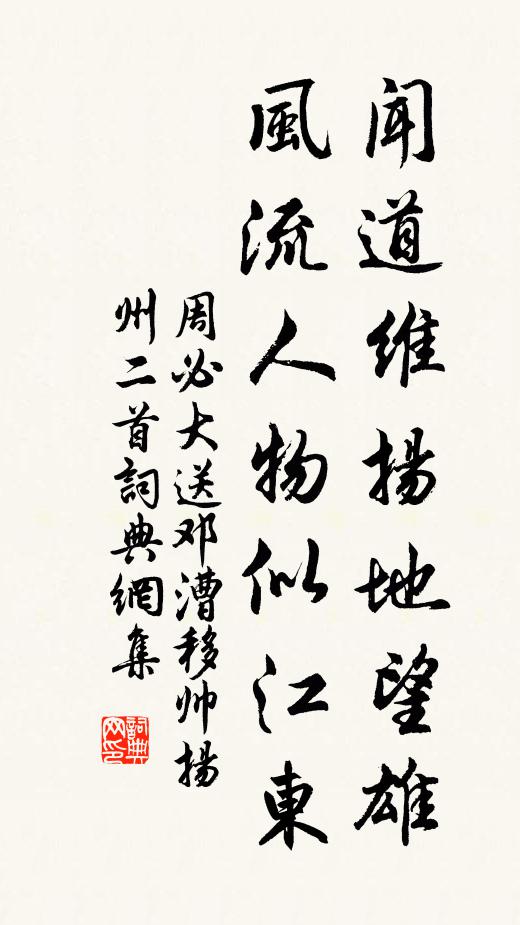 聞道維揚地望雄
風流人物似江東
周必大送邓漕移帅揚
州二首詞典網集
詞典
网印